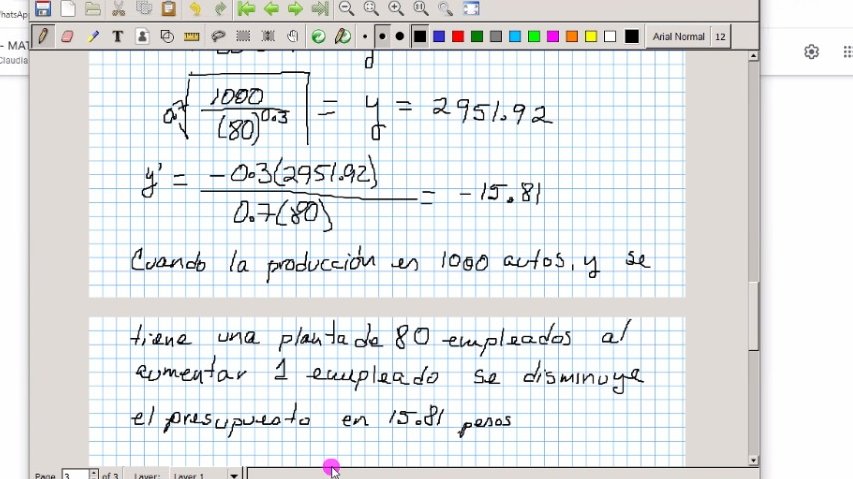 hatsApp
- MAT
Claudia
Arial Normal 12
0.7√ 1000 / (80)^0.3 = y = 2951.92
y' = -0.3(2951.92) / 0.7(80) = -15.81
Cuando la producción en 1000 autos, y se
tiene una planta de 80 empleados al
aumentar 1 empleado se disminuye
el presupuesto en 15.81 pesos
Page 3 of 3 Layer: Layer 1